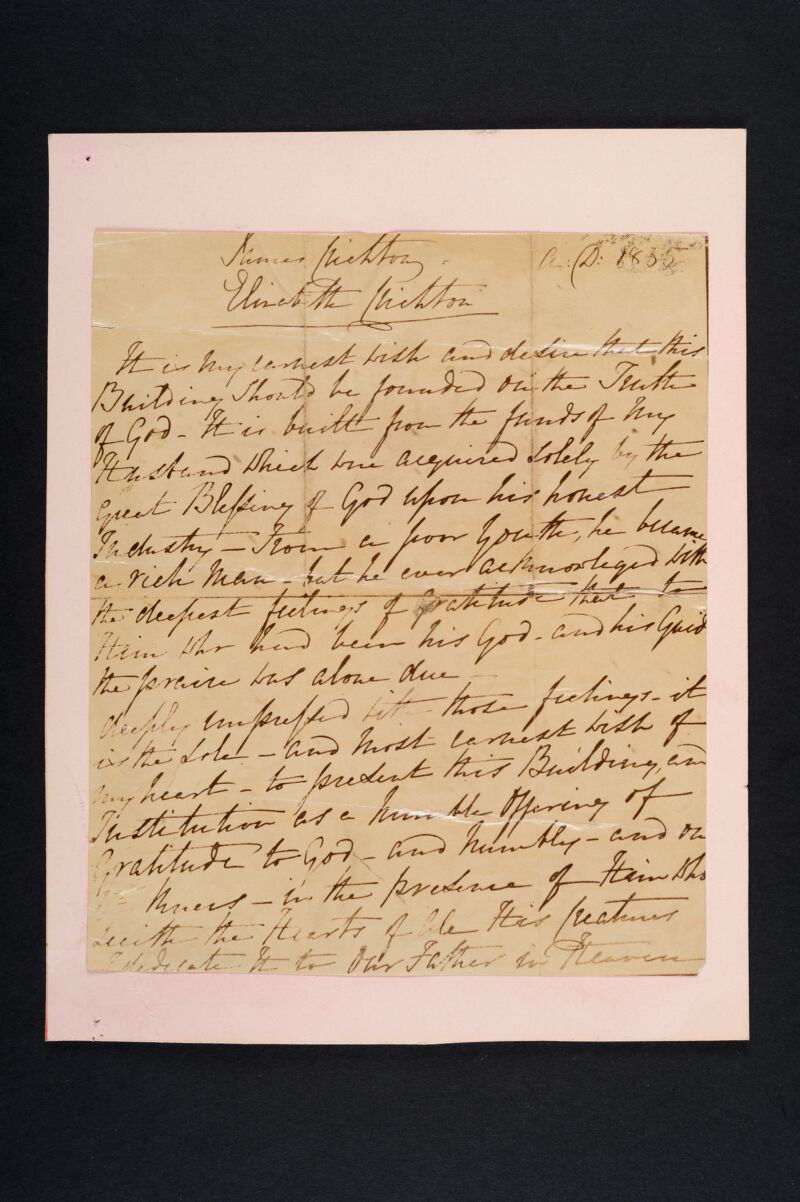 James Crichton. A: D: 1835
Elizabeth Crichton
It is my earnest wish and desire that this
Building should be founded on the Truth
of God - It is built from the funds of my
Husband which were acquired solely by the
Great Blessing of God upon his honest
Industry - From a poor Youth, he became
a rich Man - but he ever acknowleged with
the deepest feelings of Gratitude that to
Him who had been his God - and his Guid
the praise was alone due -
deeply impressed with those feelings - it
is the sole - and most earnest wish of
my heart - to present this Building, and
Institution as a humble Offering of
Gratitude to God - and humbly - and on
my knees - in the presence of Him who
seeith the Hearts of ale His Creatures
I dedicate It to Our Father in Heaven